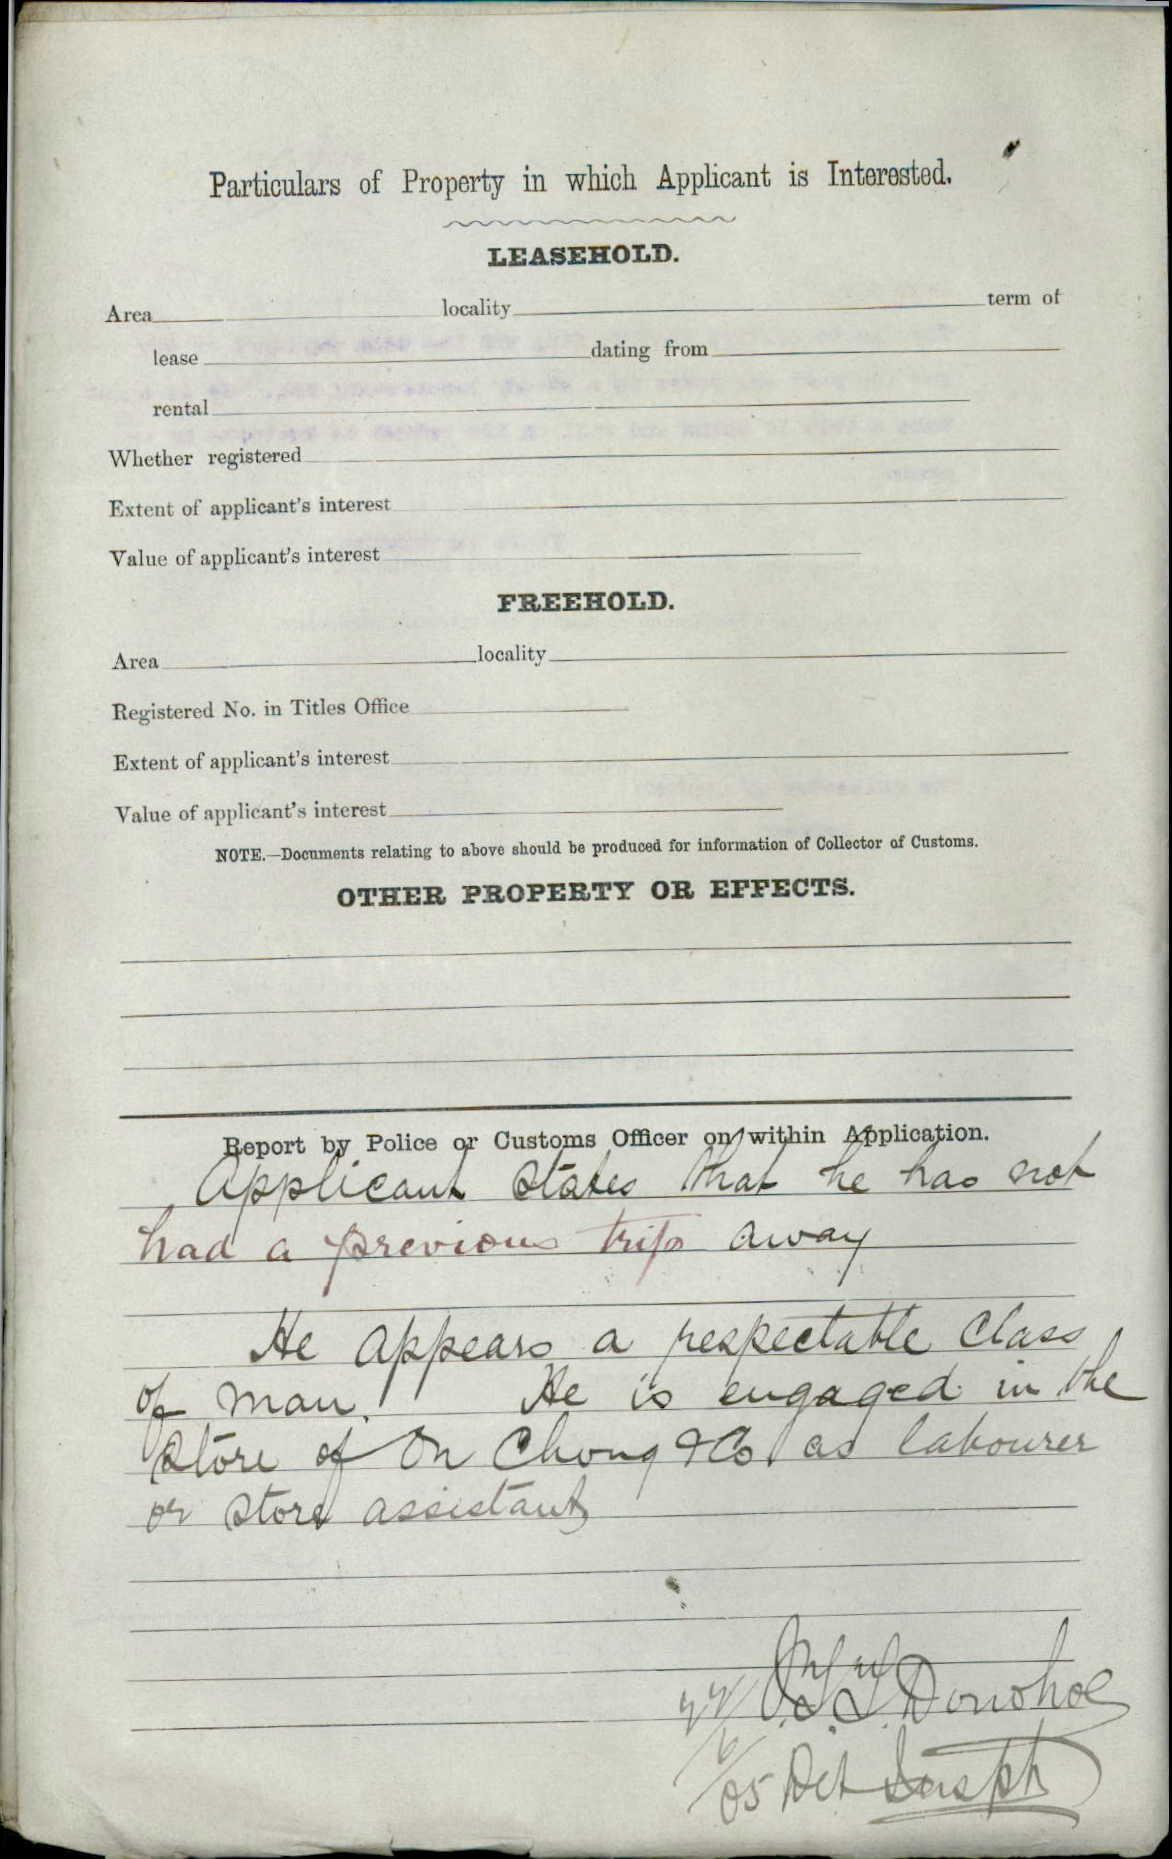 Particulars of Property in which Applicant is Interested.
LEASEHOLD.
Area locality term of
lease dating from
rental
Whether registered
Extent of applicant's interest
Value of applicant's interest
FREEHOLD.
Area locality
Registered No. in Titles Office
Extent of applicant's interest
Value of applicant's interest
NOTE.—Documents relating to above should be produced for information of Collector of Customs.
OTHER PROPERTY OR EFFECTS.
Report by Police or Customs Officer on within Application.
Applicant states that he has not
had a previous trip away
He appears a respectable class
of man. He is engaged in the
store of On Chong & Co. as labourer
or store assistant
Donohoe
05 Det